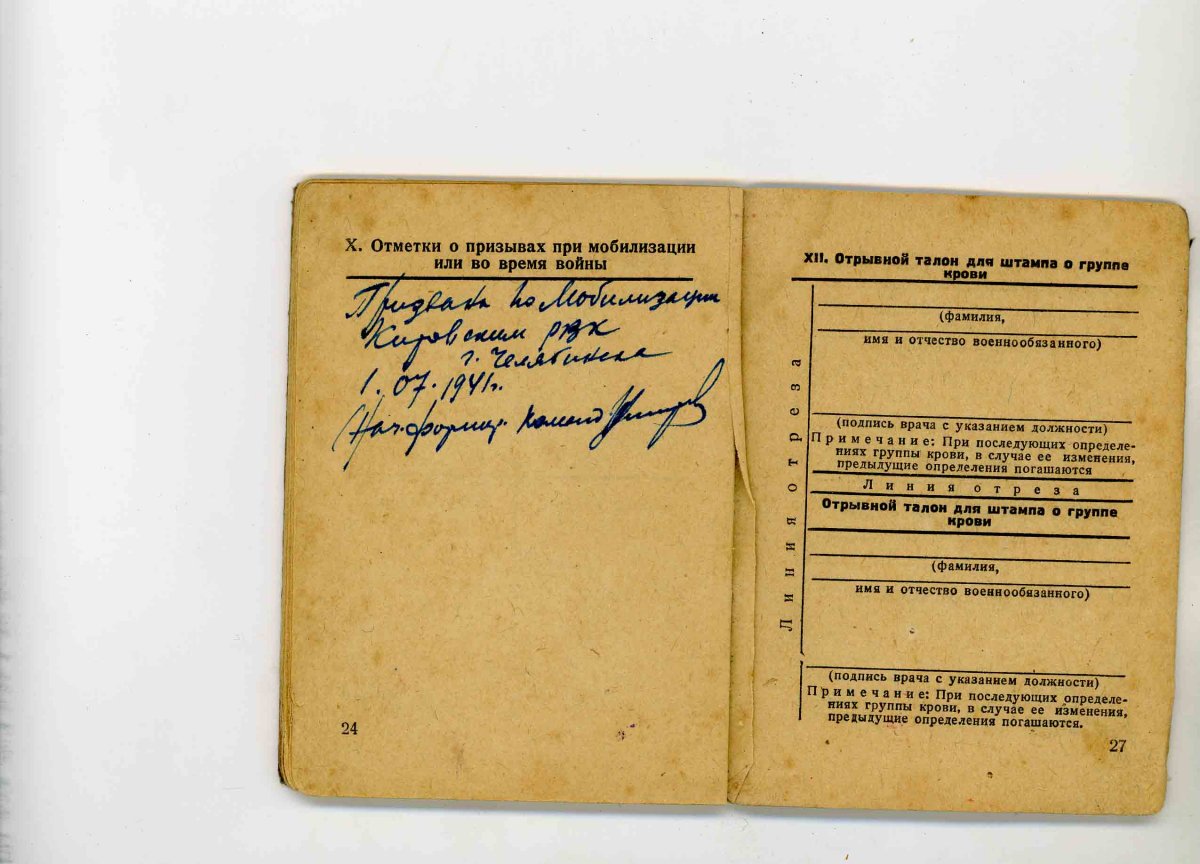 X. Отметки о призывах при мобилизации
или во время войны
Призвана по мобилизации
Кировским РВК
г. Челябинска
1. 07. 1941г.
Нач. формир.
24
XII. Отрывной талон для штампа о группе
крови
(фамилия,
имя и отчество военнообязанного)
(подпись врача с указанием должности)
Примечание: При последующих определе-
ниях группы крови, в случае ее изменения,
предыдущие определения погашаются
Линия отреза
Отрывной талон для штампа о группе
крови
(фамилия,
имя и отчество военнообязанного)
(подпись врача с указанием должности)
Примечание: При последующих определе-
ниях группы крови, в случае ее изменения,
предыдущие определения погашаются.
Линия отреза
27